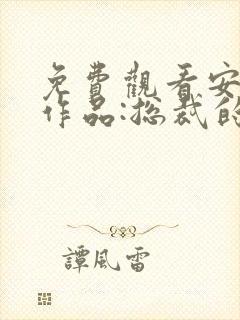 免費觀看安
作品:總裁的
譚風雷